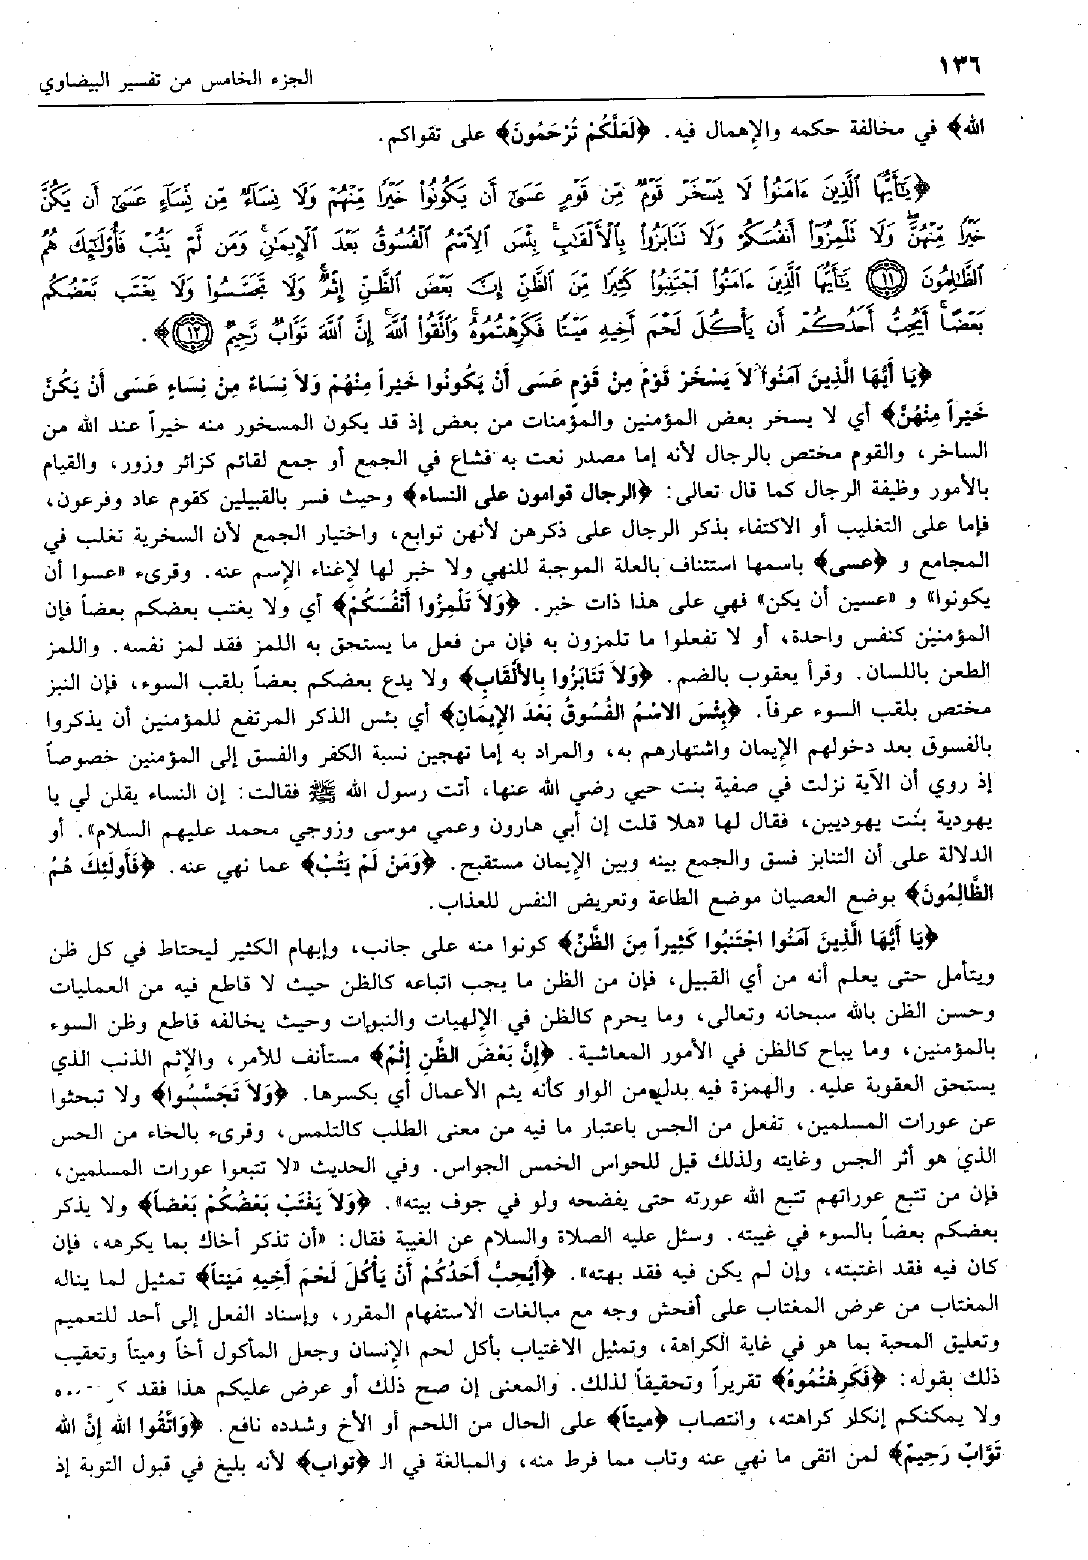 ١٣٦
الجزء الخامس من تفسير البيضاوي
الله﴾ في مخالفة حكمه والإهمال فيه. ﴿لَعَلَّكُمْ تُرْحَمُونَ﴾ على تقواكم.
﴿يَٰٓأَيُّهَا ٱلَّذِينَ ءَامَنُوا۟ لَا يَسْخَرْ قَوْمٌ مِّن قَوْمٍ عَسَىٰٓ أَن يَكُونُوا۟ خَيْرًا مِّنْهُمْ وَلَا نِسَآءٌ مِّن نِّسَآءٍ عَسَىٰٓ أَن يَكُنَّ
خَيْرًا مِّنْهُنَّ ۖ وَلَا تَلْمِزُوٓا۟ أَنفُسَكُمْ وَلَا تَنَابَزُوا۟ بِٱلْأَلْقَٰبِ ۖ بِئْسَ ٱلِٱسْمُ ٱلْفُسُوقُ بَعْدَ ٱلْإِيمَٰنِ ۚ وَمَن لَّمْ يَتُبْ فَأُو۟لَٰٓئِكَ هُمُ
ٱلظَّٰلِمُونَ ﴿١١﴾ يَٰٓأَيُّهَا ٱلَّذِينَ ءَامَنُوا۟ ٱجْتَنِبُوا۟ كَثِيرًا مِّنَ ٱلظَّنِّ إِنَّ بَعْضَ ٱلظَّنِّ إِثْمٌ ۖ وَلَا تَجَسَّسُوا۟ وَلَا يَغْتَب بَّعْضُكُم
بَعْضًا ۚ أَيُحِبُّ أَحَدُكُمْ أَن يَأْكُلَ لَحْمَ أَخِيهِ مَيْتًا فَكَرِهْتُمُوهُ ۚ وَٱتَّقُوا۟ ٱللَّهَ ۚ إِنَّ ٱللَّهَ تَوَّابٌ رَّحِيمٌ ﴿١٢﴾﴾.
﴿يَا أَيُّهَا الَّذِينَ آمَنُوا لاَ يَسْخَرْ قَوْمٌ مِنْ قَوْمٍ عَسَى أَنْ يَكُونُوا خَيْراً مِنْهُمْ وَلاَ نِسَاءٌ مِنْ نِسَاءٍ عَسَى أَنْ يَكُنَّ
خَيْراً مِنْهُنَّ﴾ أي لا يسخر بعض المؤمنين والمؤمنات من بعض إذ قد يكون المسخور منه خيراً عند الله من
الساخر، والقوم مختص بالرجال لأنه إما مصدر نعت به فشاع في الجمع أو جمع لقائم كزائر وزور، والقيام
بالأمور وظيفة الرجال كما قال تعالى: ﴿الرجال قوامون على النساء﴾ وحيث فسر بالقبيلين كقوم عاد وفرعون،
فإما على التغليب أو الاكتفاء بذكر الرجال على ذكرهن لأنهن توابع، واختيار الجمع لأن السخرية تغلب في
المجامع و ﴿عسى﴾ باسمها استئناف بالعلة الموجبة للنهي ولا خبر لها لإغناء الإسم عنه. وقرىء «عسوا أن
يكونوا» و «عسين أن يكن» فهي على هذا ذات خبر. ﴿وَلاَ تَلْمِزُوا أَنْفُسَكُمْ﴾ أي ولا يغتب بعضكم بعضاً فإن
المؤمنين كنفس واحدة، أو لا تفعلوا ما تلمزون به فإن من فعل ما يستحق به اللمز فقد لمز نفسه. واللمز
الطعن باللسان. وقرأ يعقوب بالضم. ﴿وَلاَ تَنَابَزُوا بِالأَلْقَابِ﴾ ولا يدع بعضكم بعضاً بلقب السوء، فإن النبز
مختص بلقب السوء عرفاً. ﴿بِئْسَ الاسْمُ الفُسُوقُ بَعْدَ الإِيمَانِ﴾ أي بئس الذكر المرتفع للمؤمنين أن يذكروا
بالفسوق بعد دخولهم الإيمان واشتهارهم به، والمراد به إما تهجين نسبة الكفر والفسق إلى المؤمنين خصوصاً
إذ روي أن الآية نزلت في صفية بنت حيي رضي الله عنها، أتت رسول الله ﷺ فقالت: إن النساء يقلن لي يا
يهودية بنت يهوديين، فقال لها «هلا قلت إن أبي هارون وعمي موسى وزوجي محمد عليهم السلام». أو
الدلالة على أن التنابز فسق والجمع بينه وبين الإيمان مستقبح. ﴿وَمَنْ لَمْ يَتُبْ﴾ عما نهي عنه. ﴿فَأُولَئِكَ هُمُ
الظَّالِمُونَ﴾ بوضع العصيان موضع الطاعة وتعريض النفس للعذاب.
﴿يَا أَيُّهَا الَّذِينَ آمَنُوا اجْتَنِبُوا كَثِيراً مِنَ الظَّنِّ﴾ كونوا منه على جانب، وإبهام الكثير ليحتاط في كل ظن
ويتأمل حتى يعلم أنه من أي القبيل، فإن من الظن ما يجب اتباعه كالظن حيث لا قاطع فيه من العمليات
وحسن الظن بالله سبحانه وتعالى، وما يحرم كالظن في الإلهيات والنبوات وحيث يخالفه قاطع وظن السوء
بالمؤمنين، وما يباح كالظن في الأمور المعاشية. ﴿إِنَّ بَعْضَ الظَّنِ إِثْمٌ﴾ مستأنف للأمر، والإثم الذنب الذي
يستحق العقوبة عليه. والهمزة فيه بدل من الواو كأنه يثم الأعمال أي بكسرها. ﴿وَلاَ تَجَسَّسُوا﴾ ولا تبحثوا
عن عورات المسلمين، تفعل من الجس باعتبار ما فيه من معنى الطلب كالتلمس، وقرىء بالحاء من الحس
الذي هو أثر الجس وغايته ولذلك قيل للحواس الخمس الجواس. وفي الحديث «لا تتبعوا عورات المسلمين،
فإن من تتبع عوراتهم تتبع الله عورته حتى يفضحه ولو في جوف بيته». ﴿وَلاَ يَغْتَبْ بَعْضُكُمْ بَعْضاً﴾ ولا يذكر
بعضكم بعضاً بالسوء في غيبته. وسئل عليه الصلاة والسلام عن الغيبة فقال: «أن تذكر أخاك بما يكرهه، فإن
كان فيه فقد اغتبته، وإن لم يكن فيه فقد بهته». ﴿أَيُحِبُّ أَحَدُكُمْ أَنْ يَأْكُلَ لَحْمَ أَخِيهِ مَيتاً﴾ تمثيل لما يناله
المغتاب من عرض المغتاب على أفحش وجه مع مبالغات الاستفهام المقرر، وإسناد الفعل إلى أحد للتعميم
وتعليق المحبة بما هو في غاية الكراهة، وتمثيل الاغتياب بأكل لحم الإنسان وجعل المأكول أخاً وميتاً وتعقيب
ذلك بقوله: ﴿فَكَرِهْتُمُوهُ﴾ تقريراً وتحقيقاً لذلك. والمعنى إن صح ذلك أو عرض عليكم هذا فقد
ولا يمكنكم إنكار كراهته، وانتصاب ﴿ميتاً﴾ على الحال من اللحم أو الأخ وشدده نافع. ﴿وَاتَّقُوا الله إِنَّ الله
تَوَّابٌ رَحِيمٌ﴾ لمن اتقى ما نهي عنه وتاب مما فرط منه، والمبالغة في الـ ﴿تواب﴾ لأنه بليغ في قبول التوبة إذ